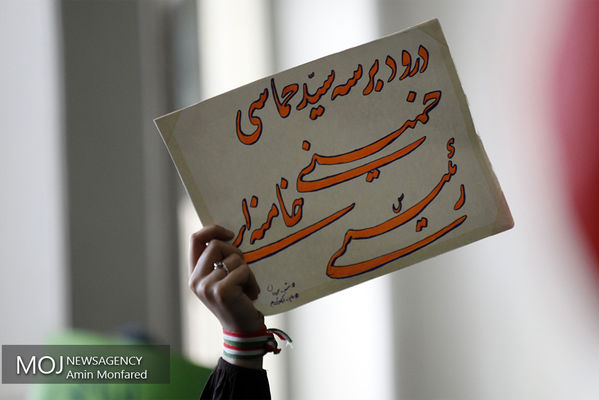 درود بر سه سیّد حماسی
خمینی خامنه‌ای
رئیسی
MOJ NEWSAGENCY
Amin Monfared